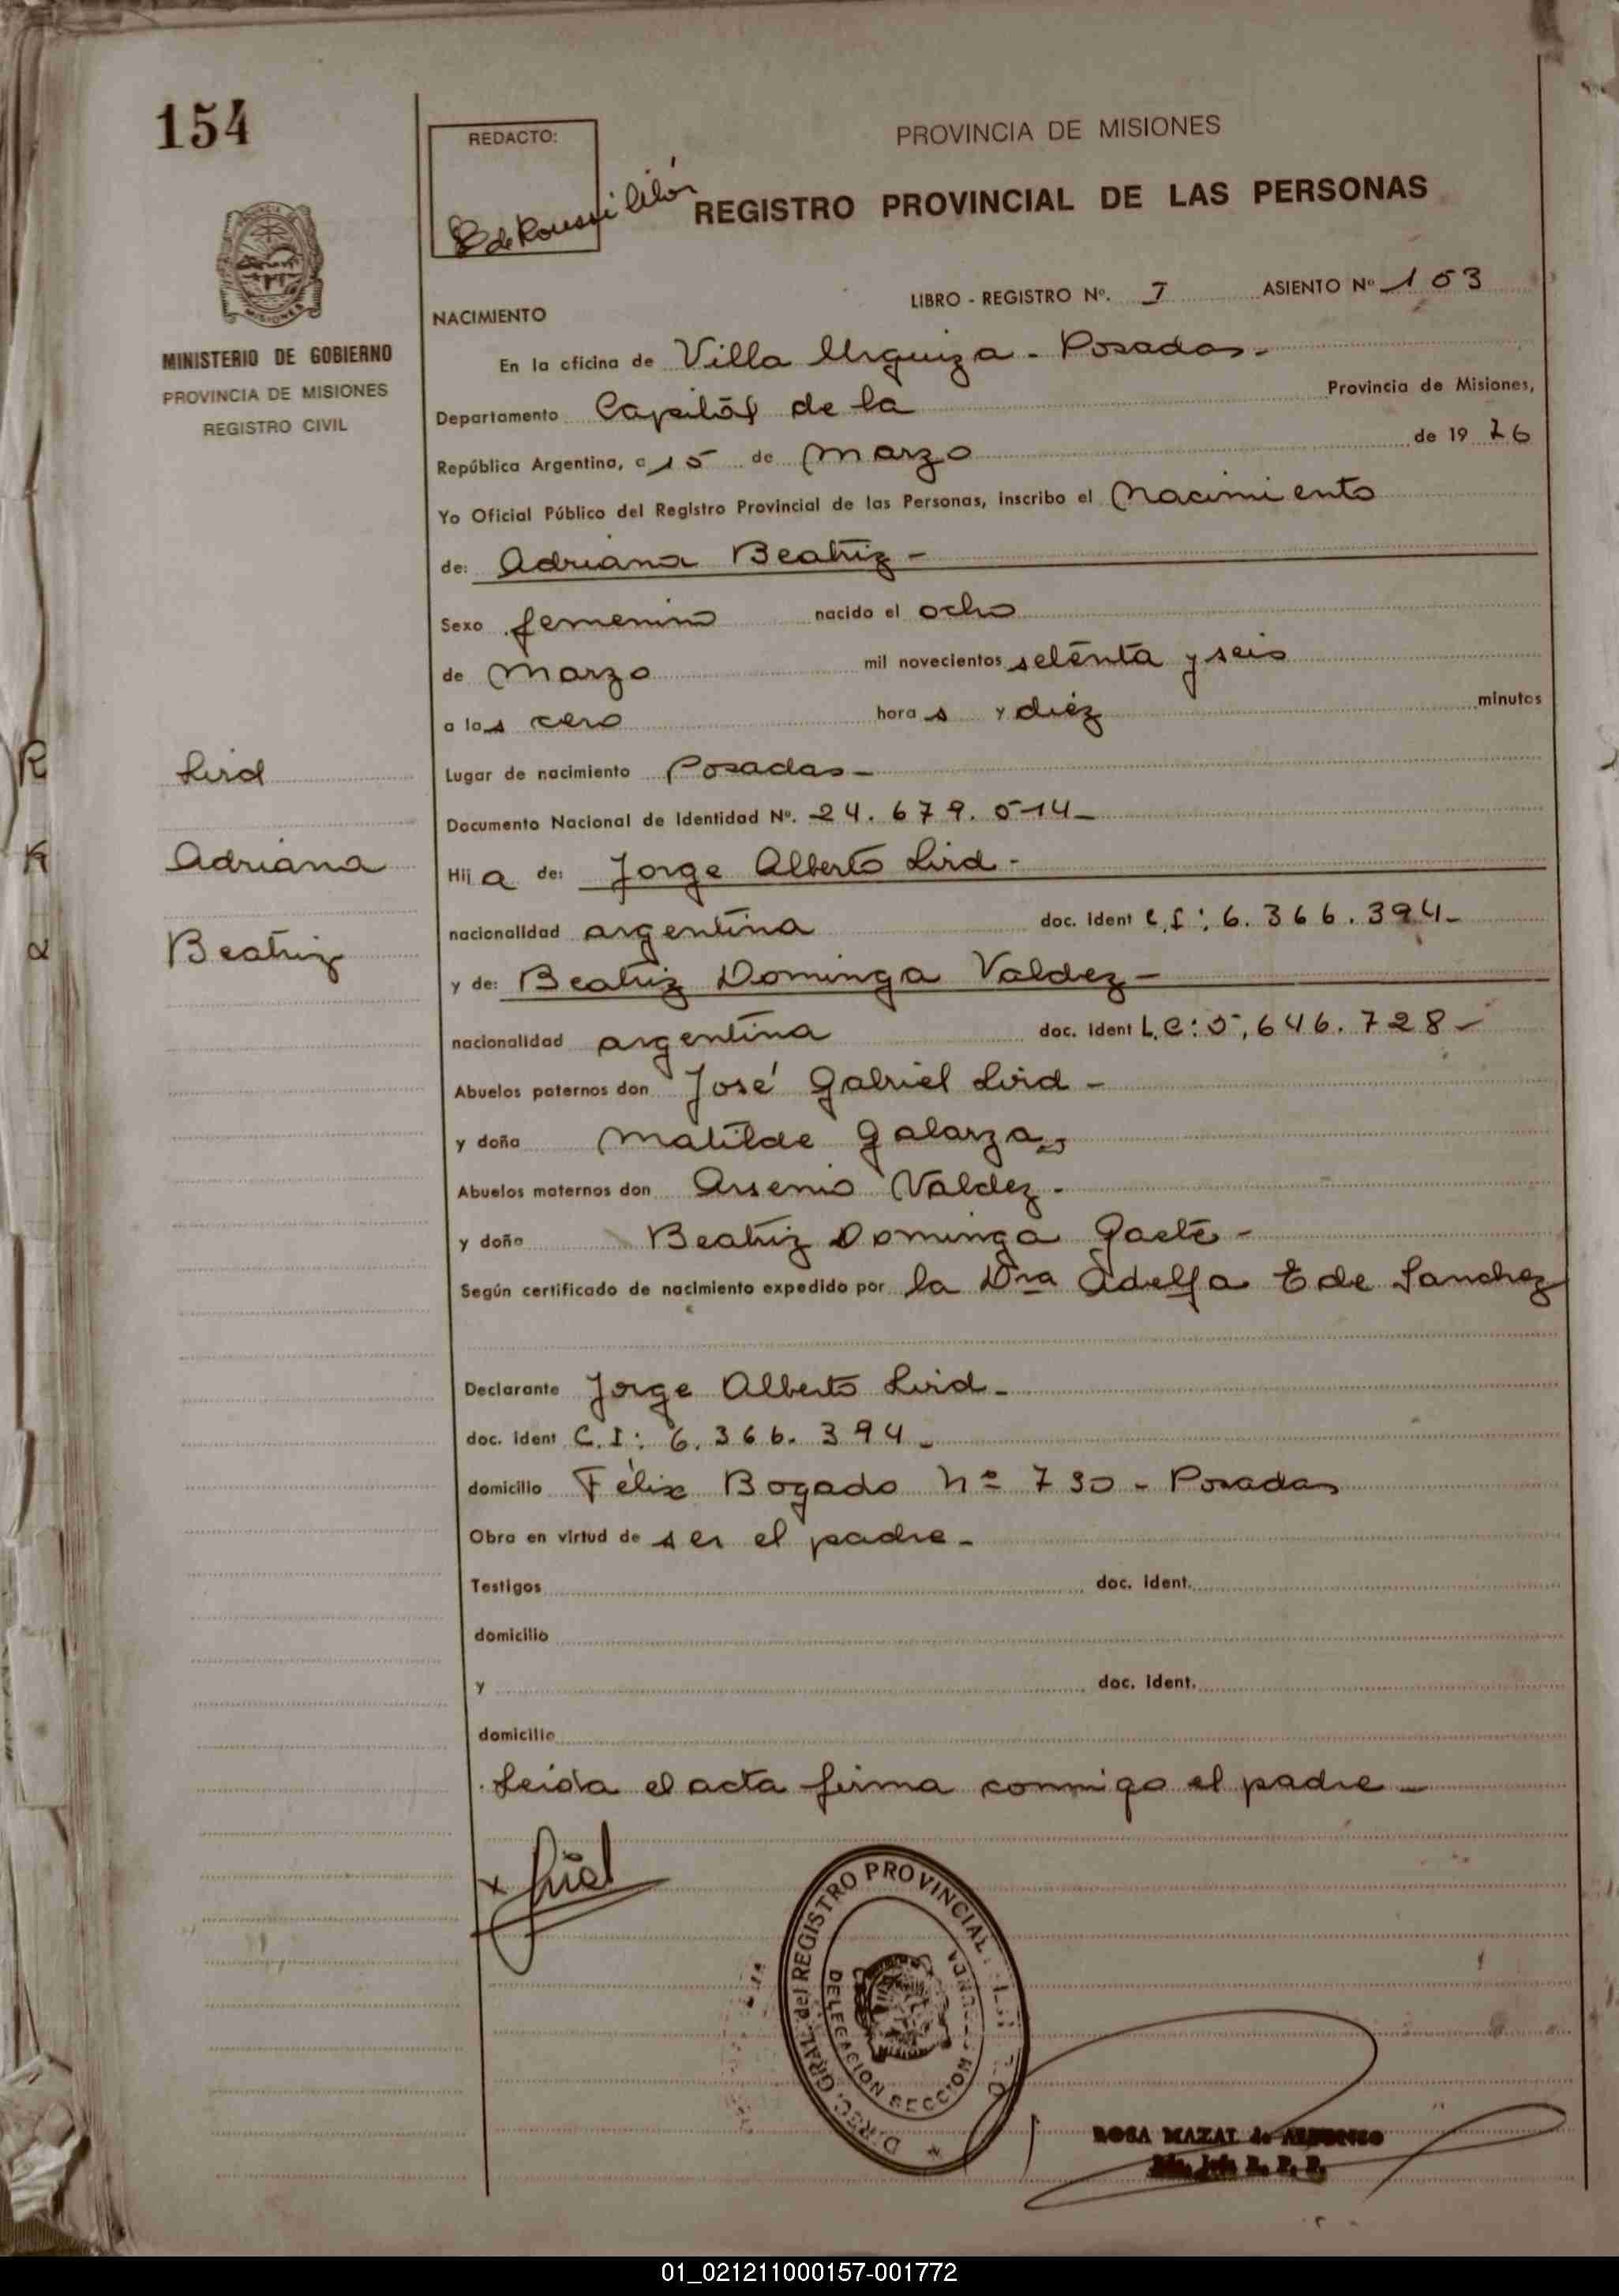 154
REDACTO:
PROVINCIA DE MISIONES
REGISTRO PROVINCIAL DE LAS PERSONAS
MINISTERIO DE GOBIERNO
PROVINCIA DE MISIONES
REGISTRO CIVIL
LIBRO - REGISTRO Nº. I ASIENTO Nº 153
NACIMIENTO
En la oficina de Villa Urquiza - Posadas -
Departamento Capital de la Provincia de Misiones,
República Argentina, a 15 de Marzo de 19 76
Yo Oficial Público del Registro Provincial de las Personas, inscribo el Nacimiento
de: Adriana Beatriz -
Sexo femenino nacido el ocho
de Marzo mil novecientos setenta y seis
a las cero horas y diéz minutos
Lird
Lugar de nacimiento Posadas -
Documento Nacional de Identidad Nº. 24.679.514 -
Adriana
Hija de: Jorge Alberto Lird -
nacionalidad argentina doc. Ident C.I: 6.366.394 -
Beatriz
y de: Beatriz Dominga Valdez -
nacionalidad argentina doc. Ident L.C: 5.646.728 -
Abuelos paternos don José Gabriel Lird -
y doña Matilde Galarza
Abuelos maternos don Arsenio Valdez -
y doña Beatriz Dominga Gaete -
Según certificado de nacimiento expedido por la Dra Adelfa E de Sanchez
Declarante Jorge Alberto Lird -
doc. Ident C.I: 6.366.394 -
domicilio Félix Bogado Nº 730 - Posadas
Obra en virtud de ser el padre -
Testigos doc. Ident.
domicilio
y doc. Ident.
domicilio
Leida el acta firma conmigo el padre -
DIREC. GRAL. del REGISTRO PROVINCIAL
DELEGACION SECCION
ROSA MAZAL de
01_021211000157-001772